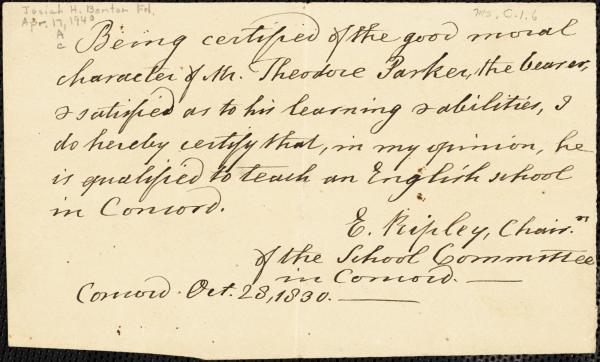 Josiah H. Benton Fd.
Apr. 17, 1940
A
c
Ms. C.1.6
Being certified of the good moral
character of Mr. Theodore Parker, the bearer,
& satisfied as to his learning & abilities, I
do hereby certify that, in my opinion, he
is qualified to teach an English school
in Concord.
E. Ripley, Chair.n
of the School Committee
in Concord. —
Concord. Oct. 28, 1830. —